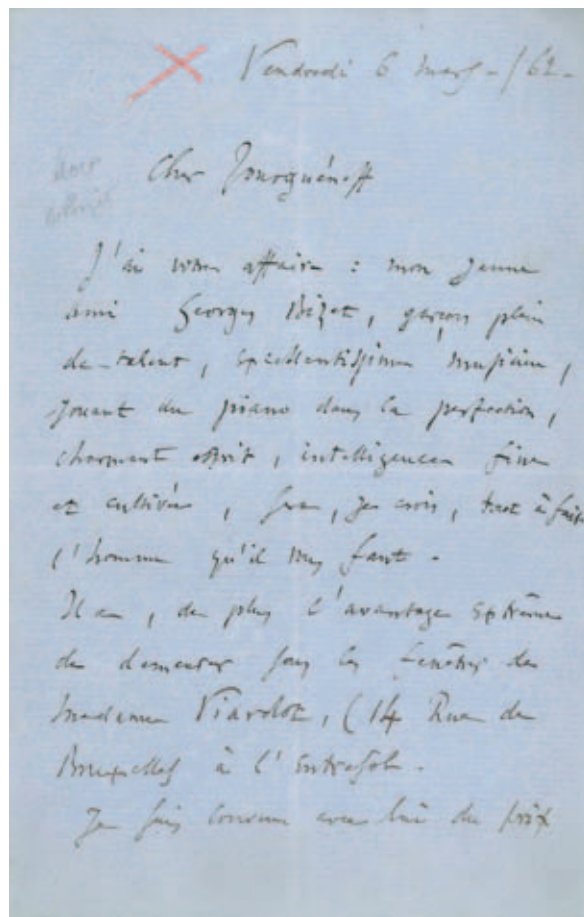 Vendredi 6 mars - / 62 -
Cher Tourguéneff
J'ai votre affaire : mon jeune
ami Georges Bizet, garçon plein
de talent, excellentissime musicien,
jouant du piano dans la perfection,
charmant esprit, intelligence fine
et cultivée, sera, je crois, tout à fait
l'homme qu'il vous faut.
Il a, de plus l'avantage extrême
de demeurer sous les fenêtres de
Madame Viardot, (14 Rue de
Bruxelles à l'entresol.
Je suis convenu avec lui du prix